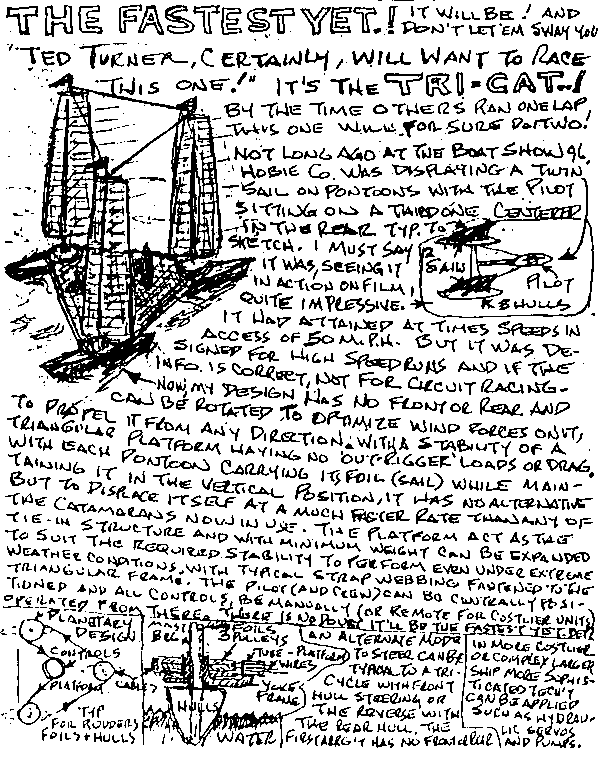 THE FASTEST YET.! IT WILL BE! AND
DON'T LET'EM SWAY YOU
"TED TURNER, CERTAINLY, WILL WANT TO RACE
THIS ONE!" IT'S THE TRI-CAT..!
BY THE TIME OTHERS RAN ONE LAP,
THIS ONE WILL FOR SURE DO TWO!
NOT LONG AGO AT THE BOAT SHOW 96,
HOBIE CO. WAS DISPLAYING A TWIN
SAIL ON PONTOONS WITH THE PILOT
SITTING ON A THIRD ONE CENTERED
IN THE REAR TYP. TO A
SKETCH. I MUST SAY
IT WAS, SEEING IT
IN ACTION ON FILM,
QUITE IMPRESSIVE.
SAIL
PILOT
HULLS
IT HAD ATTAINED AT TIMES SPEEDS IN
ACCESS OF 50 M.P.H. BUT IT WAS DE-
SIGNED FOR HIGH SPEED RUNS AND IF THE
INFO. IS CORRECT, NOT FOR CIRCUIT RACING-
NOW, MY DESIGN HAS NO FRONT OR REAR AND
CAN BE ROTATED TO OPTIMIZE WIND FORCES ON IT,
TO PROPEL IT FROM ANY DIRECTION. WITH A STABILITY OF A
TRIANGULAR PLATFORM HAVING NO 'OUT-RIGGER' LOADS OR DRAG.
WITH EACH PONTOON CARRYING ITS FOIL (SAIL) WHILE MAIN-
TAINING IT IN THE VERTICAL POSITION, IT HAS NO ALTERNATIVE
BUT TO DISPLACE ITSELF AT A MUCH FASTER RATE THAN ANY OF
THE CATAMARANS NOW IN USE. THE PLATFORM ACT AS THE
TIE-IN STRUCTURE AND WITH MINIMUM WEIGHT CAN BE EXPANDED
TO SUIT THE REQUIRED STABILITY TO PERFORM EVEN UNDER EXTREME
WEATHER CONDITIONS. WITH TYPICAL STRAP WEBBING FASTENED TO THE
TRIANGULAR FRAME. THE PILOT (AND CREW) CAN BE CENTRALLY POSI-
TIONED AND ALL CONTROLS, BE MANUALLY (OR REMOTE FOR COSTLIER UNITS)
OPERATED FROM THERE. THERE IS NO DOUBT IT'LL BE THE FASTEST YET.
PLANETARY
DESIGN
CONTROLS
PLATFORM CABLES
TYP
FOIL RUDDERS
FOILS & HULLS
MAST FOIL
BRG. 3 PULLEYS
TUBE - PLATFORM
WIRES
YOKE
FRAME
HULLS
WATER
AN ALTERNATE MODE
TO STEER CAN BE
TYPICAL TO A TRI-
CYCLE WITH FRONT
HULL STEERING OR
THE REVERSE WITH
THE REAR HULL. THE
FIRST CARRG'T HAS NO FRONT OR REAR
IN MORE COSTLIER
OR COMPLEX LARGER
SHIP MORE SOPHIS-
TICATED TECH'Y
CAN BE APPLIED
SUCH AS HYDRAU-
LIC SERVOS
AND PUMPS.